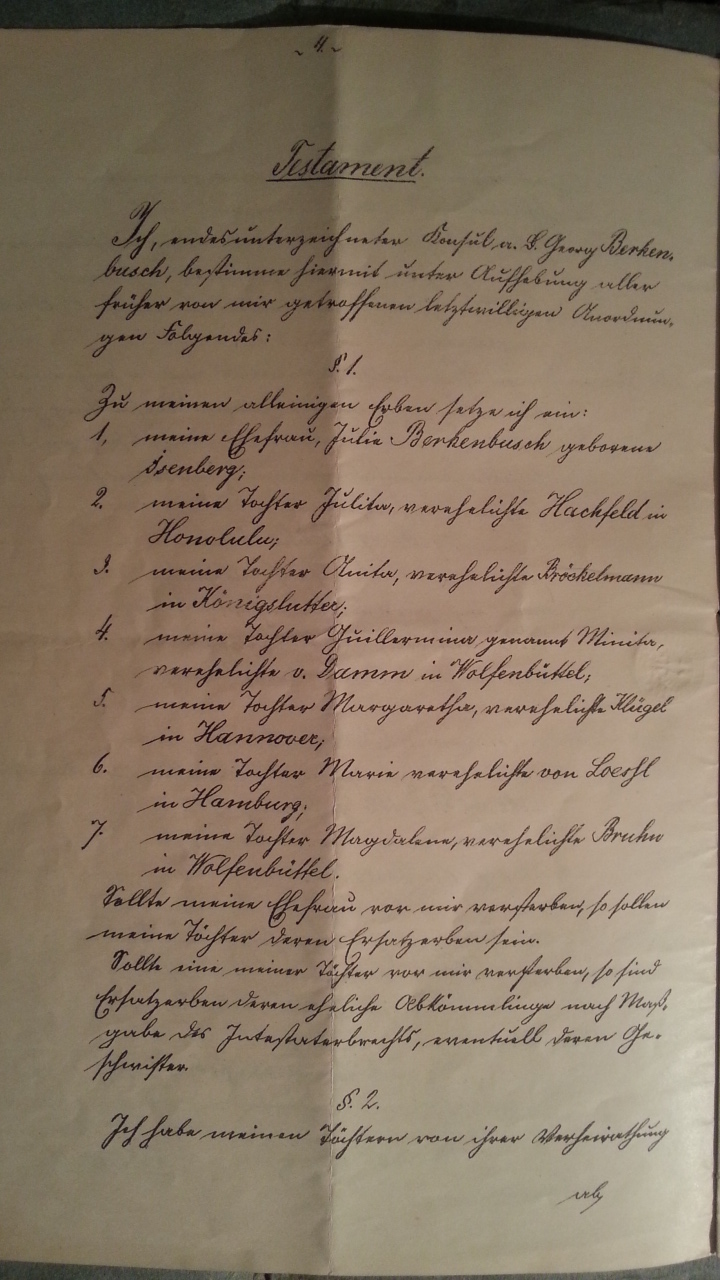 ~ 4. ~
Testament.
Ich, endesunterzeichneter Konsul a. D. Georg Berken-
busch, bestimme hiermit unter Aufhebung aller
früher von mir getroffenen letztwilligen Anordnun-
gen Folgendes:
§. 1.
Zu meinen alleinigen Erben setze ich ein:
1, meine Ehefrau, Julie Berkenbusch geborene
Isenberg;
2. meine Tochter Julita, verehelichte Hackfeld in
Honolulu;
3. meine Tochter Anita, verehelichte Bröckelmann
in Königslutter;
4. meine Tochter Guillermina genannt Minita,
verehelichte v. Damm in Wolfenbüttel;
5. meine Tochter Margaretha, verehelichte Klügel
in Hannover;
6. meine Tochter Marie verehelichte von
in Hamburg;
7. meine Tochter Magdalene, verehelichte Bruhn
in Wolfenbüttel.
Sollte meine Ehefrau vor mir versterben, so sollen
meine Töchter deren Ersatzerben sein.
Sollte eine meiner Töchter vor mir versterben, so sind
Ersatzerben deren eheliche Abkömmlinge nach Maß-
gabe des Intestaterbrechts, eventuell deren Ge-
schwister.
§. 2.
Ich habe meinen Töchtern von ihrer Verheirathung
ab